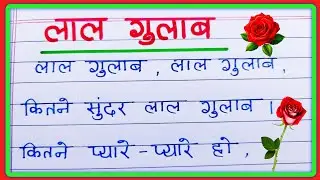 लाल गुलाब
लाल गुलाब, लाल गुलाब,
कितने सुंदर लाल गुलाब।
कितने प्यारे-प्यारे हो,